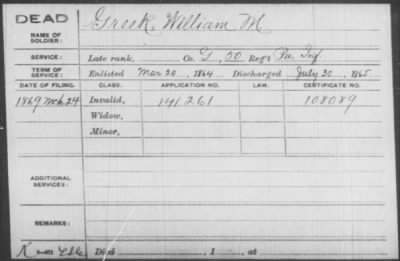 DEAD
NAME OF SOLDIER: Greek, William M
SERVICE: Late rank, Co. D, 50 Reg't Pa. Inf
TERM OF SERVICE: Enlisted Mar 20, 1864 Discharged July 30, 1865
DATE OF FILING. CLASS. APPLICATION NO. LAW. CERTIFICATE NO.
1869 Mch. 24 Invalid, 141261 108089
Widow,
Minor,
ADDITIONAL SERVICES:
REMARKS:
Died , 1 , at